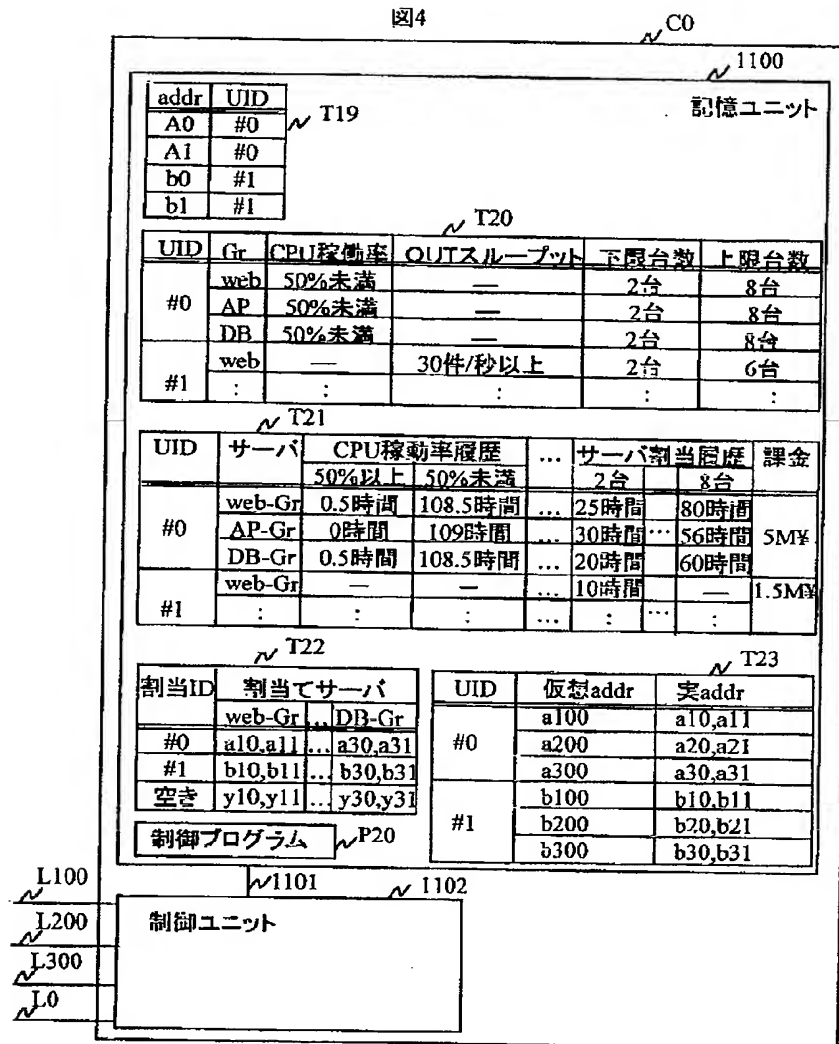 図4
C0
1100
記憶ユニット
addr UID
A0 #0
A1 #0
b0 #1
b1 #1
T19
T20
UID Gr CPU稼働率 OUTスループット 下限台数 上限台数
#0 web 50%未満 — 2台 8台
AP 50%未満 — 2台 8台
DB 50%未満 — 2台 8台
#1 web — 30件/秒以上 2台 6台
: : : : :
T21
UID サーバ CPU稼動率履歴 … サーバ割当履歴 課金
50%以上 50%未満 2台 8台
#0 web-Gr 0.5時間 108.5時間 … 25時間 80時間 5M¥
AP-Gr 0時間 109時間 … 30時間 … 56時間
DB-Gr 0.5時間 108.5時間 … 20時間 60時間
#1 web-Gr — — … 10時間 — 1.5M¥
: : : … : … :
T22
割当ID 割当てサーバ
web-Gr … DB-Gr
#0 a10,a11 … a30,a31
#1 b10,b11 … b30,b31
空き y10,y11 … y30,y31
T23
UID 仮想addr 実addr
#0 a100 a10,a11
a200 a20,a21
a300 a30,a31
#1 b100 b10,b11
b200 b20,b21
b300 b30,b31
制御プログラム P20
1101
1102
L100
L200
L300
L0
制御ユニット